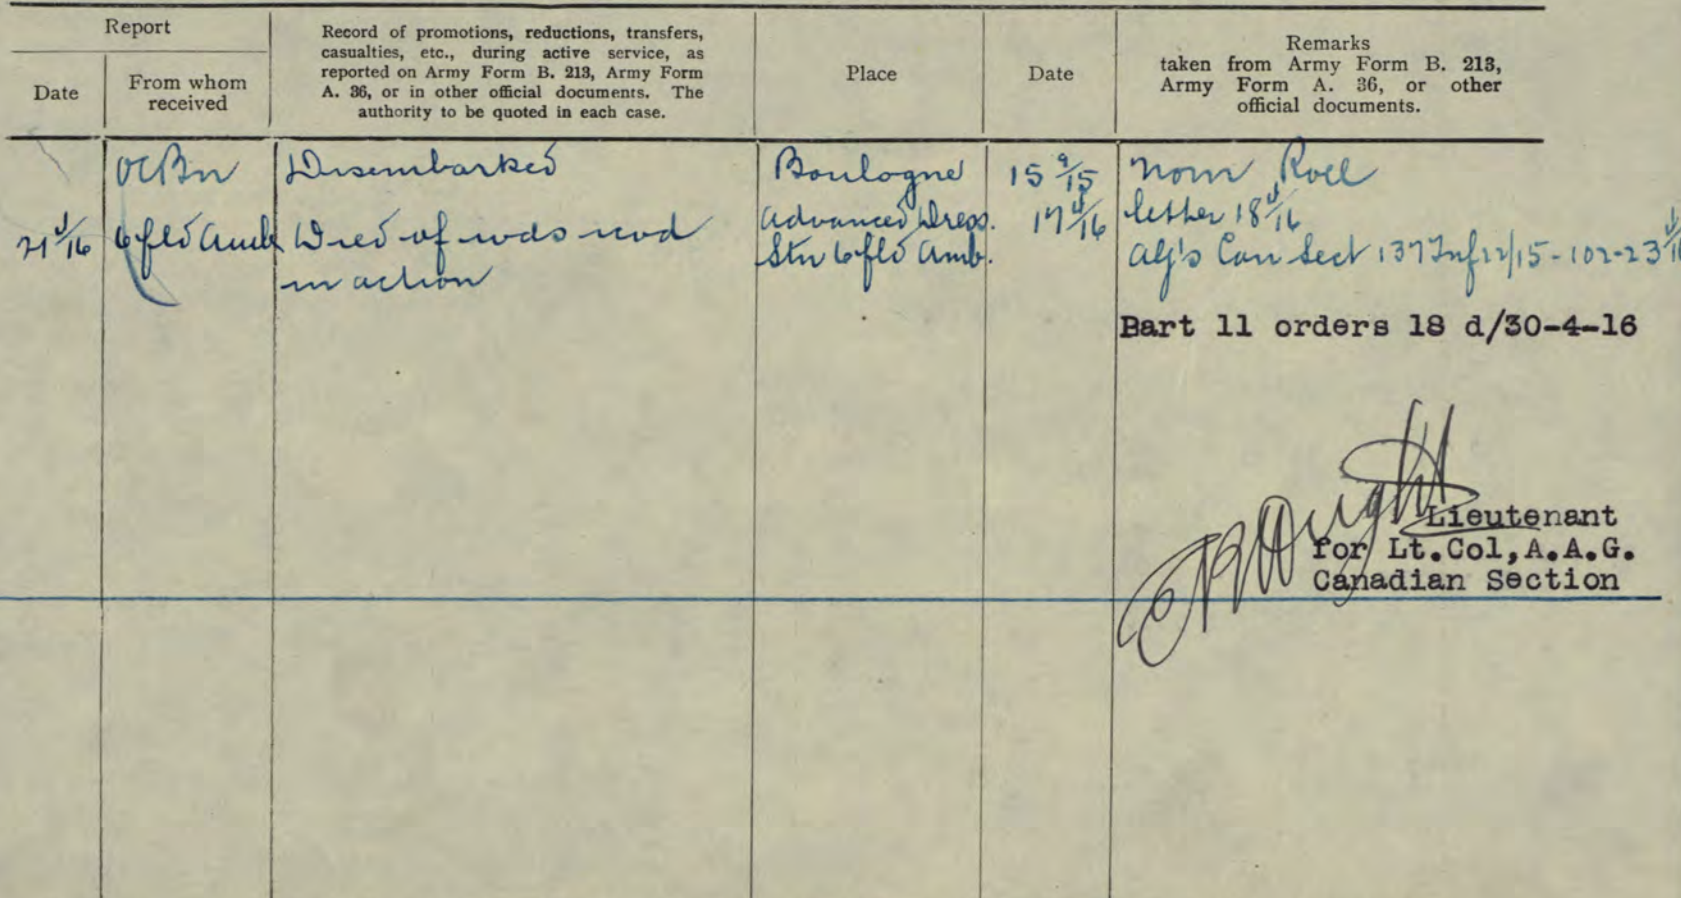 Report
Date
From whom
received
Record of promotions, reductions, transfers,
casualties, etc., during active service, as
reported on Army Form B. 213, Army Form
A. 36, or in other official documents. The
authority to be quoted in each case.
Place
Date
Remarks
taken from Army Form B. 213,
Army Form A. 36, or other
official documents.
OCBn Disembarked Boulogne 15 9/15 Nom Roll
21 4/16 6 fld Amb Died of wds rcvd Advanced Dress. 17 4/16 letter 18 4/16
in action Stn 6 fld Amb. Can Sect 137 Inf 22/15-102-23
Bart 11 orders 18 d/30-4-16
Lieutenant
for Lt.Col,A.A.G.
Canadian Section